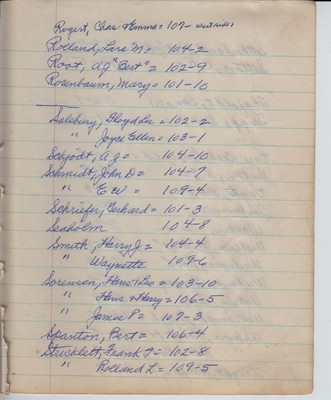 Rogert, Chas & Emma = 107- west side
Rolland, Lars M = 104-2
Root, A J "Bert" = 102-9
Rosenbaum, Mary = 101-10
Salsbury, Floyd Lee = 102-2
" Joyce Ellen = 103-1
Schjodt, A J = 104-10
Schmidt, John D = 104-7
" E W = 109-4
Schriefer, Gerhard = 101-3
Seaholm 104-8
Smith, Harry J = 104-4
" Waynette 109-6
Sorenson, Hans & Leo = 103-10
" Hans & Mary = 106-5
" James P = 107-3
Spanton, Bert = 106-4
Stricklett, Frank T = 102-8
" Rolland L = 109-5